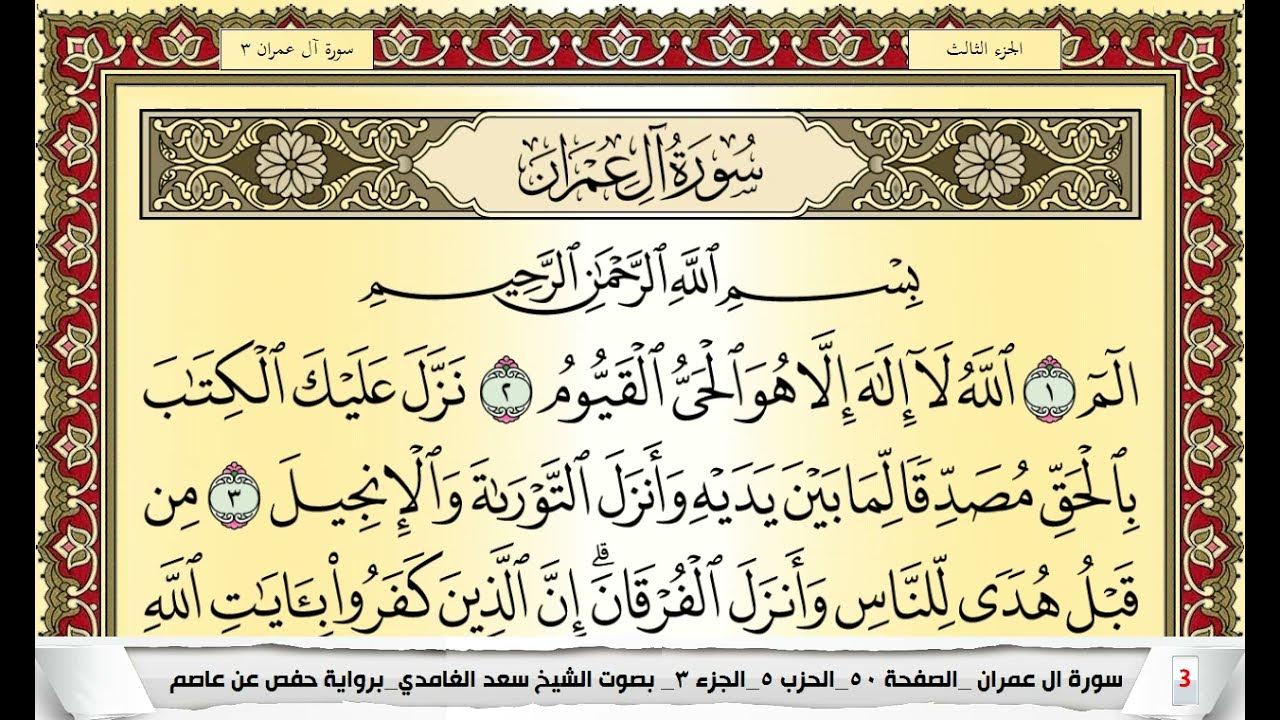 الجزء الثالث
سورة آل عمران ٣
سُورَةُ آلِ عِمْرَان
بِسْمِ ٱللَّهِ ٱلرَّحْمَٰنِ ٱلرَّحِيمِ
الٓمٓ ١ ٱللَّهُ لَآ إِلَٰهَ إِلَّا هُوَ ٱلْحَىُّ ٱلْقَيُّومُ ٢ نَزَّلَ عَلَيْكَ ٱلْكِتَٰبَ
بِٱلْحَقِّ مُصَدِّقًا لِّمَا بَيْنَ يَدَيْهِ وَأَنزَلَ ٱلتَّوْرَىٰةَ وَٱلْإِنجِيلَ ٣ مِن
قَبْلُ هُدًى لِّلنَّاسِ وَأَنزَلَ ٱلْفُرْقَانَ ۗ إِنَّ ٱلَّذِينَ كَفَرُوا۟ بِـَٔايَٰتِ ٱللَّهِ
3 سورة ال عمران _الصفحة ٥٠_الحزب ٥_الجزء ٣_ بصوت الشيخ سعد الغامدي_برواية حفص عن عاصم